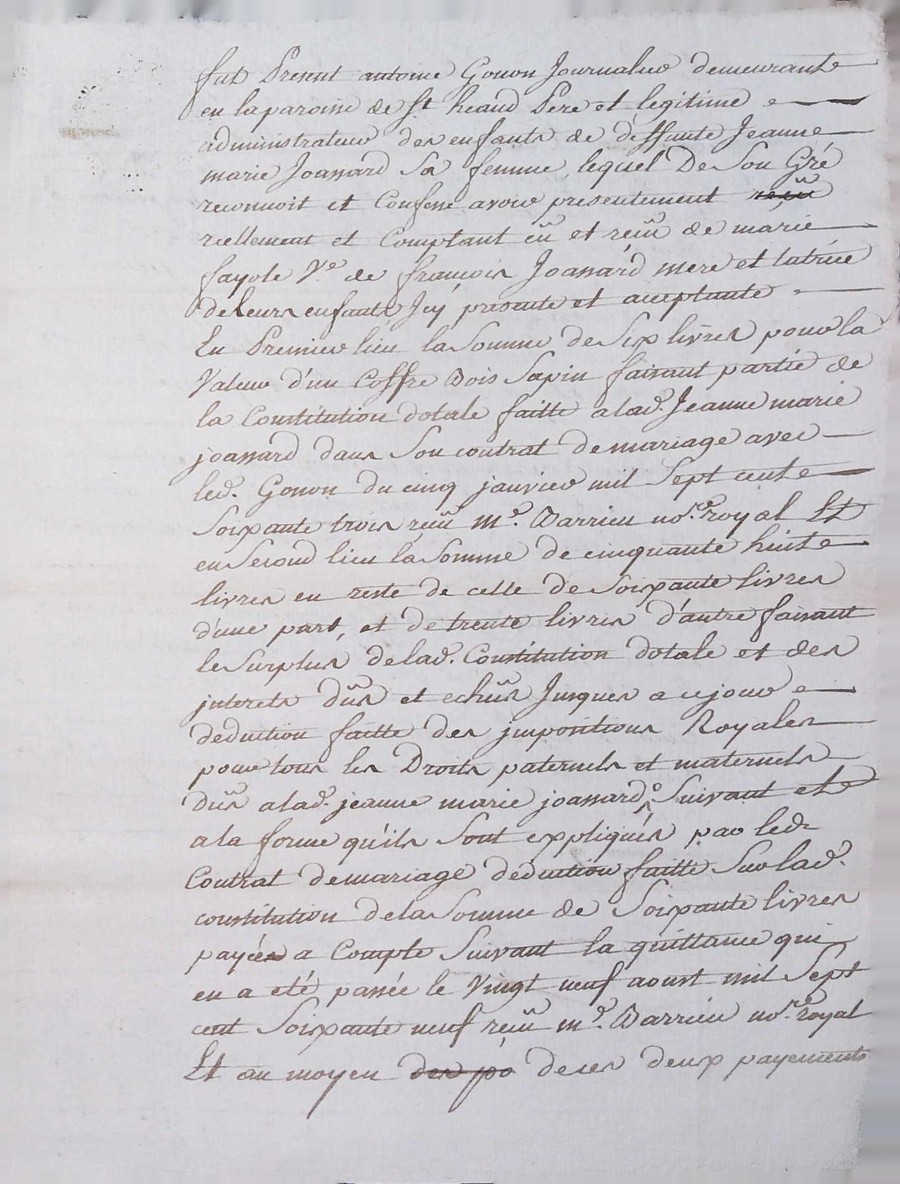 fut Present antoine Gonon Journalier demeurante
en la paroisse de St. heand Pere et legitime
administrateur des enfants de deffunte Jeanne
marie Joassard Sa femme, lequel De Son Gré
reconnoit et Confesse avoir presentement reçû
reellement et Comptant eû et reçû de marie
fayole Ve. de françois Joassard mere et tutrice
de leurs enfants Icy presente et acceptante
En Premier lieu la Somme de Six livres pour la
Valeur d'un Coffre Bois Sapin faisant partie de
la Constitution dotale faitte a lad. Jeanne marie
joassard dans Son contrat de mariage avec
led. Gonon du cinq janvier mil Sept cents
Soixante trois reçû me. Barrieu nore. royal Et
en Second lieu la Somme de cinquante huit
livres en reste de celle de Soixante livres
d'une part, et de trente livres d'autre faisant
le Surplus de lad. Constitution dotale et des
interets dûs et echûs Jusques a ce jour
deduction faitte des impositions Royales
pour tous les Droits paternels et maternels
dûs a lad. jeanne marie joassard Suivant et
a la forme qu'ils Sont expliqués par led.
Contrat de mariage déduction faitte Sur lad.
constitution de la Somme de Soixante livres
payées a Compte Suivant la quittance qui
en a eté passée le Vingt neuf aoust mil Sept
cent Soixante neuf reçû me. Barrieu nore. royal
Et au moyen de ces deux payements